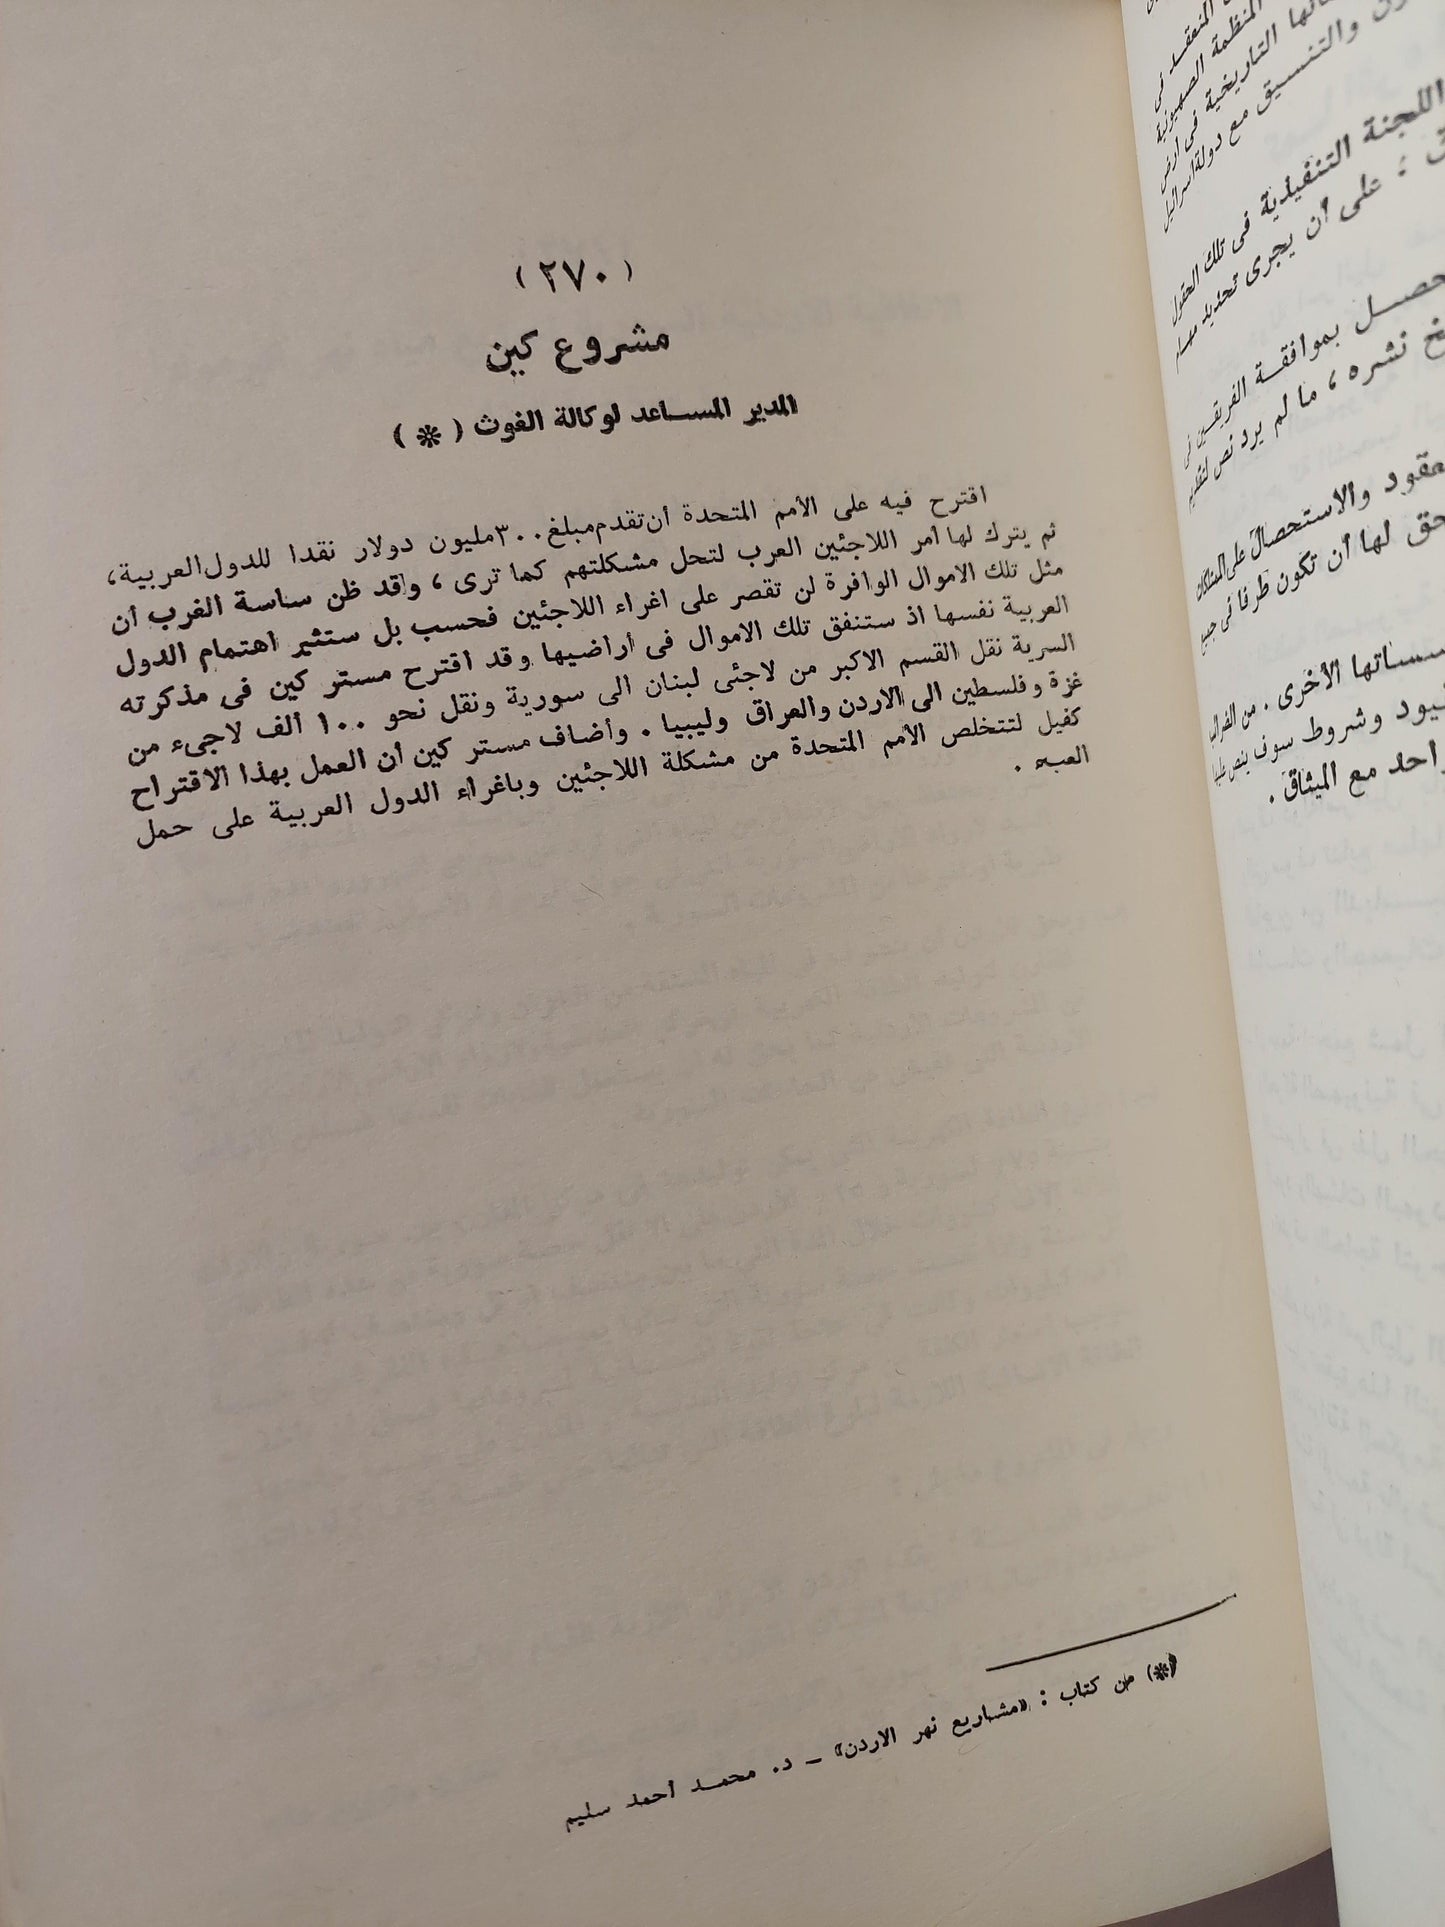 (٢٧٠)
مشروع كين
المدير المساعد لوكالة الغوث (*)
اقترح فيه على الأمم المتحدة أن تقدم مبلغ ٣٠٠ مليون دولار نقدا للدول العربية،
ثم يترك لها أمر اللاجئين العرب لتحل مشكلتهم كما ترى ، ولقد ظن ساسة الغرب أن
مثل تلك الاموال الوافرة لن تقصر على اغراء اللاجئين فحسب بل ستثير اهتمام الدول
العربية نفسها اذ ستنفق تلك الاموال فى أراضيها وقد اقترح مستر كين فى مذكرته
السرية نقل القسم الاكبر من لاجئى لبنان الى سورية ونقل نحو ١٠٠ ألف لاجىء من
غزة وفلسطين الى الاردن والعراق وليبيا . وأضاف مستر كين أن العمل بهذا الاقتراح
كفيل لتتخلص الأمم المتحدة من مشكلة اللاجئين وباغراء الدول العربية على حمل
العبء .
(*) من كتاب : «مشاريع نهر الاردن» – د. محمد أحمد سليم
المنعقد فى
المنظمة الصهيونية
التاريخية فى أرض
والتنسيق مع دولة اسرائيل
اللجنة التنفيذية فى تلك الحقول
: على أن يجرى تحديد
بموافقة الفريقين فى
نشره ، ما لم يرد نص
والاستحصال على الممتلكات
لها أن تكون طرفا فى
الأخرى . من
وشروط سوف ينص عليها
مع الميثاق .